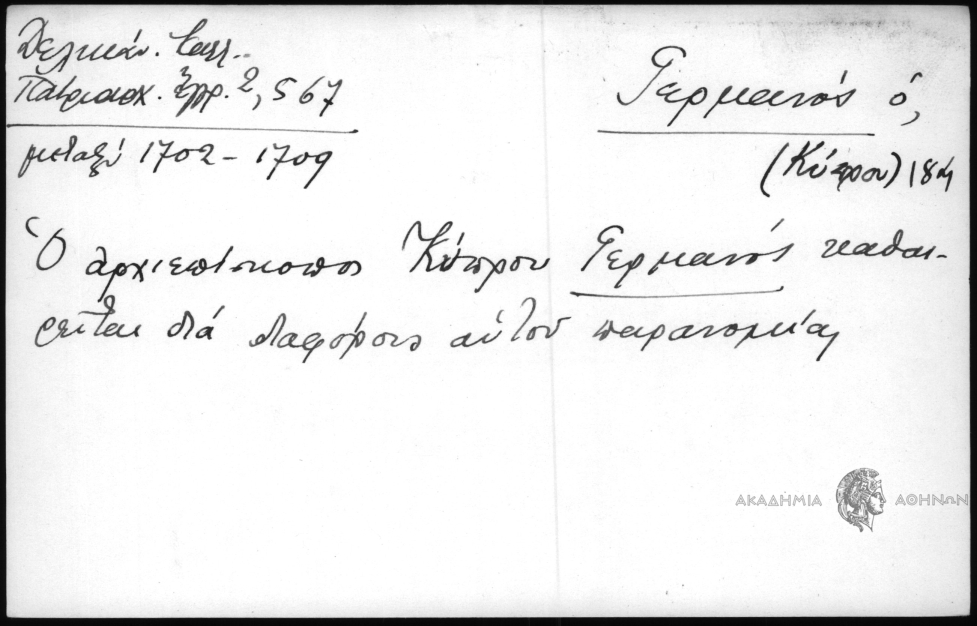 Δελικάν. Καλλ..
Πατριαρχ. Ἔγγρ. 2, 567
μεταξύ 1702 - 1709
Γερμανός ὁ,
(Κύπρου) 18η
Ὁ ἀρχιεπίσκοπος Κύπρου Γερμανός καθαι-
ρεῖται διά διαφόρους αὐτοῦ παρανομίας
ΑΚΑΔΗΜΙΑ ΑΘΗΝΩΝ